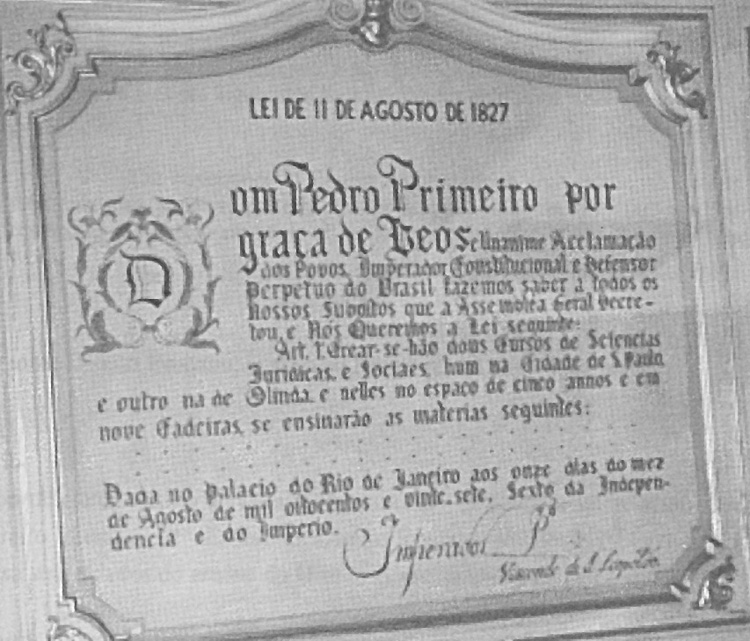 LEI DE 11 DE AGOSTO DE 1827
Dom Pedro Primeiro por
graça de Deos e Unanime Acclamação
dos Povos, Imperador Constitucional e Defensor
Perpetuo do Brasil fazemos saber a todos os
Nossos Subditos que a Assemblea Geral Decre-
tou, e Nós Queremos a Lei seguinte:
Art. 1º Crear-se-hão dous Cursos de Sciencias
Juridicas, e Sociaes, hum na Cidade de S. Paulo,
e outro na de Olinda, e nelles no espaço de cinco annos e em
nove Cadeiras, se ensinarão as materias seguintes:
Dada no Palacio do Rio de Janeiro aos onze dias do mez
de Agosto de mil oitocentos e vinte.sete, Sexto da Indepen-
dencia e do Imperio.
Imperador Pº
Visconde de S. Leopoldo